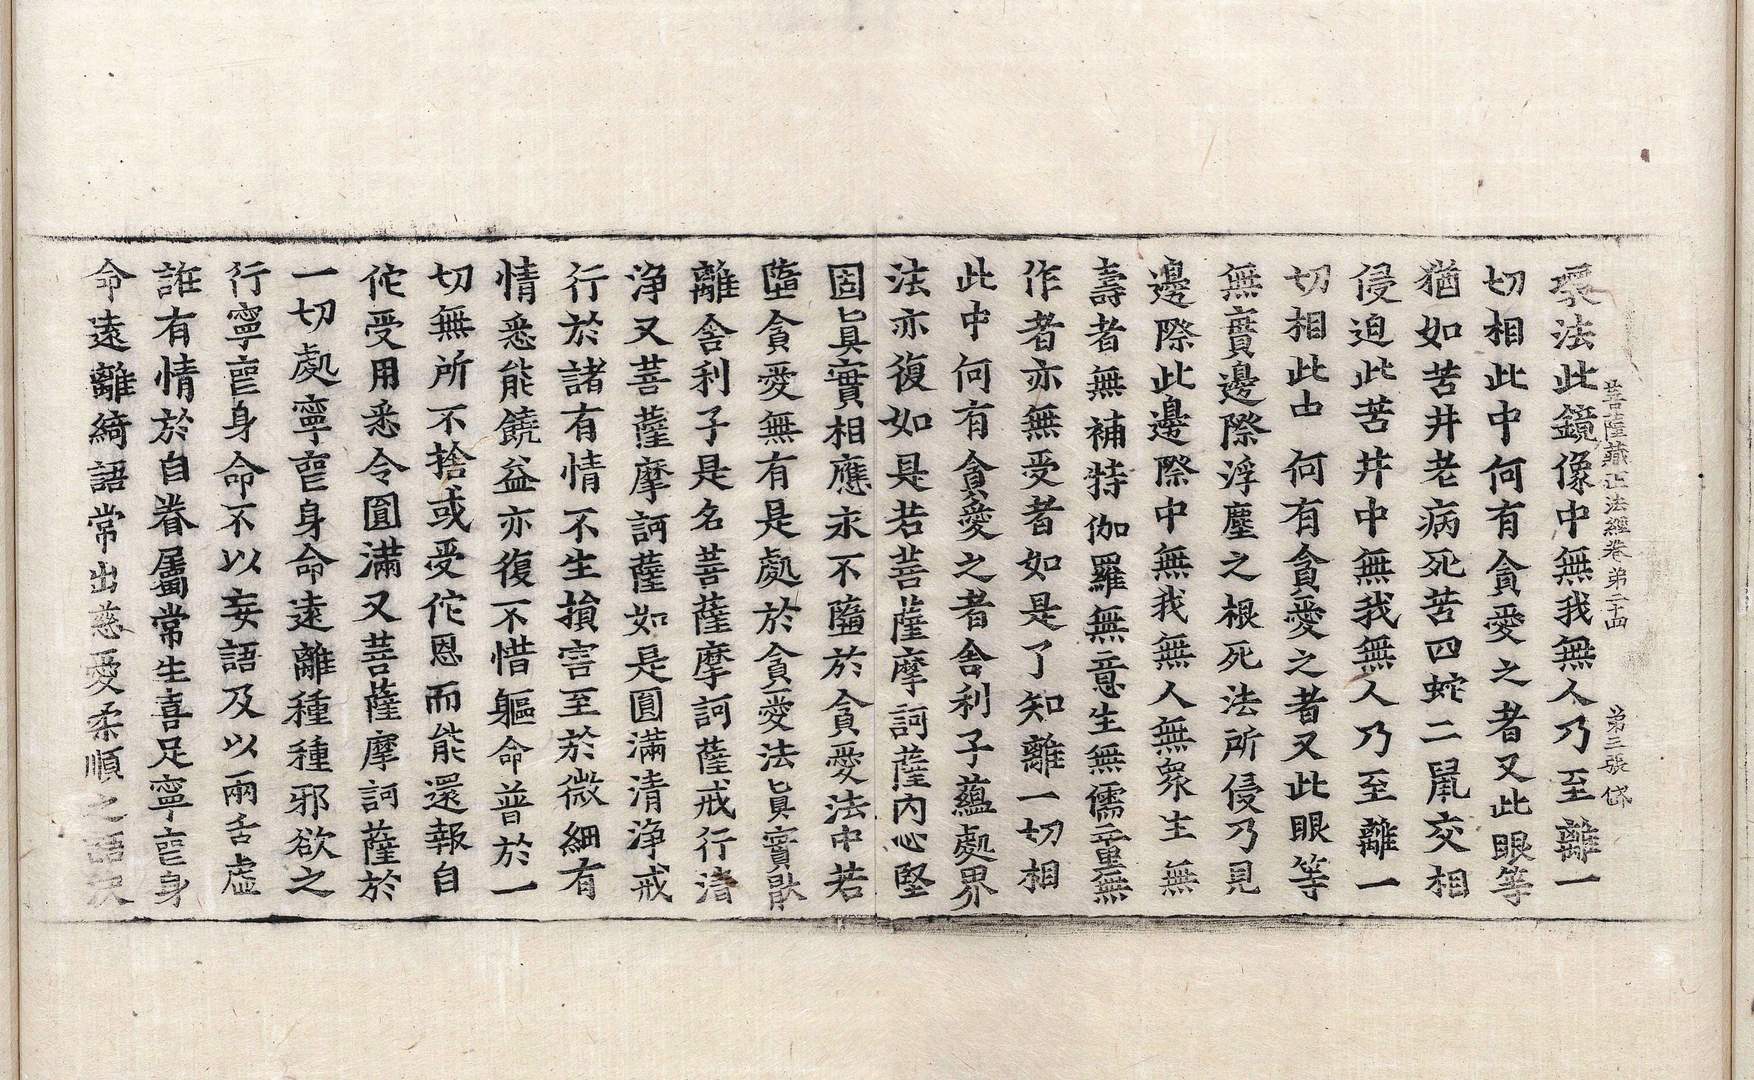 菩薩藏正法經卷第二十四 第三張 岱
眾法此鏡像中無我無人乃至離一
切相此中何有貪愛之者又此眼等
猶如苦井老病死苦四蛇二鼠交相
侵迫此苦井中無我無人乃至離一
切相此由何有貪愛之者又此眼等
無實邊際浮塵之根死法所侵乃見
邊際此邊際中無我無人無眾生無
壽者無補特伽羅無意生無儒童無
作者亦無受者如是了知離一切相
此中何有貪愛之者舍利子蘊處界
法亦復如是若菩薩摩訶薩內心堅
固眞實相應永不墮於貪愛法中若
墮貪愛無有是處於貪愛法眞實猒
離舍利子是名菩薩摩訶薩戒行清
淨又菩薩摩訶薩如是圓滿清淨戒
行於諸有情不生損害至於微細有
情悉能饒益亦復不惜軀命普於一
切無所不捨或受佗恩而能還報自
佗受用悉令圓滿又菩薩摩訶薩於
一切處寧喪身命遠離種種邪欲之
行寧喪身命不以妄語及以兩舌虛
誑有情於自眷屬常生喜足寧喪身
命遠離綺語常出慈愛柔順之語決